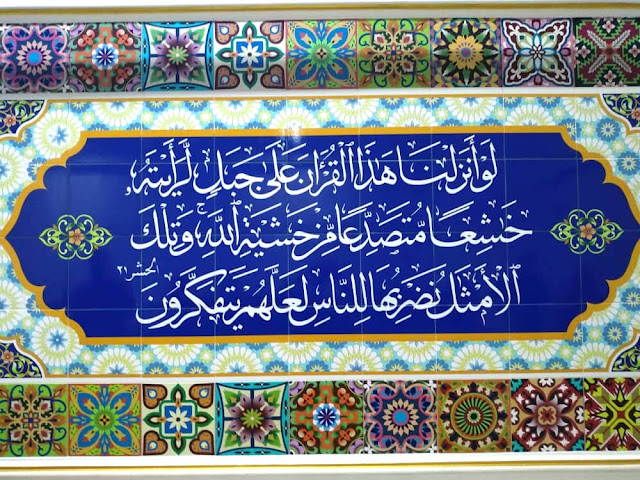 لَوْ أَنزَلْنَا هَٰذَا الْقُرْآنَ عَلَىٰ جَبَلٍ لَّرَأَيْتَهُ
خَٰشِعًا مُّتَصَدِّعًا مِّنْ خَشْيَةِ اللَّهِ ۚ وَتِلْكَ
الْأَمْثَٰلُ نَضْرِبُهَا لِلنَّاسِ لَعَلَّهُمْ يَتَفَكَّرُونَ الحشر ٢١